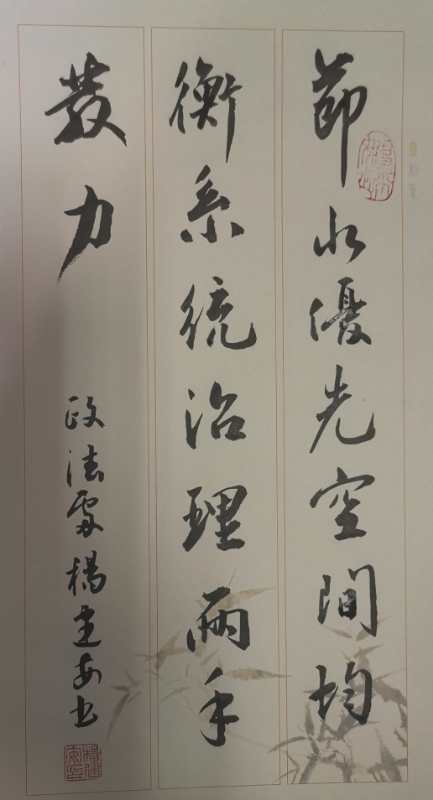 節水優先空間均
衡系統治理兩手
發力
政法處楊建安书